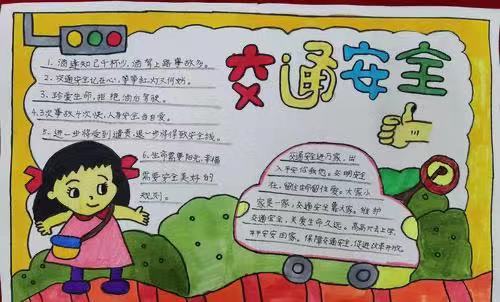 交通安全
1. 酒逢知己千杯少,酒驾上路事故多。
2. 交通安全记在心,等等红灯又何妨。
3. 珍爱生命,拒绝酒后驾驶。
4. 3次事故4次快,人身安全自己爱。
5. 进一步将受到谴责,退一步将得到安全线。
6. 生命需要阳光,幸福
需要安全美好的
规则。
交通安全进万家,出
入平安你我他。文明安全
在,留住生命留住爱。大家小
家是一家,交通安全靠大家。维护
交通安全,关爱生命久远。高高兴兴去上学,
平平安安回家。保障交通安全,促进改革开放。